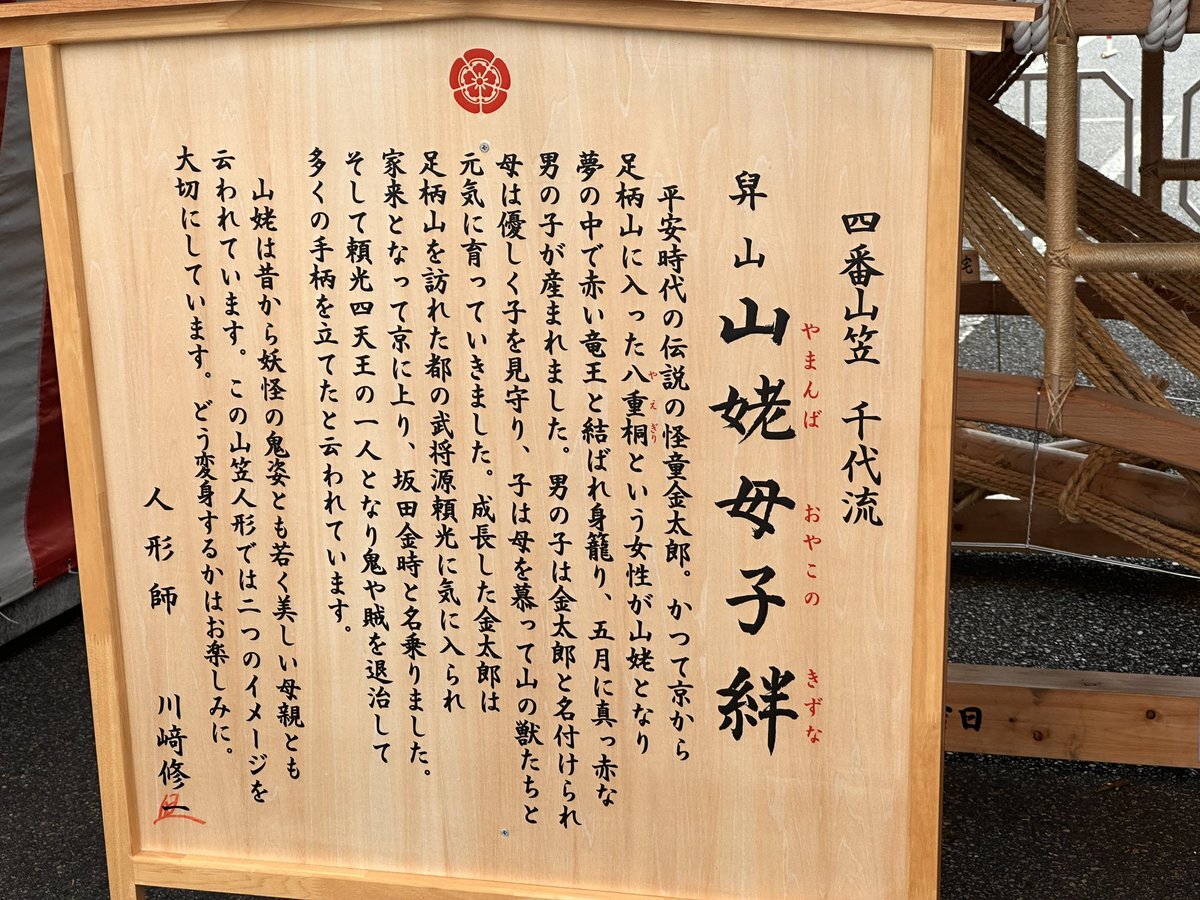 四番山笠 千代流
やまんば おやこの きずな
舁山 山姥母子絆
平安時代の伝説の怪童金太郎。かつて京から
足柄山に入った八重桐という女性が山姥となり
やえぎり
夢の中で赤い竜王と結ばれ身籠り、五月に真っ赤な
男の子が産まれました。男の子は金太郎と名付けられ
母は優しく子を見守り、子は母を慕って山の獣たちと
元気に育っていきました。成長した金太郎は
足柄山を訪れた都の武将源頼光に気に入られ
家来となって京に上り、坂田金時と名乗りました。
そして頼光四天王の一人となり鬼や賊を退治して
多くの手柄を立てたと云われています。
山姥は昔から妖怪の鬼姿とも若く美しい母親とも
云われています。この山笠人形では二つのイメージを
大切にしています。どう変身するかはお楽しみに。
人形師 川﨑修一
日